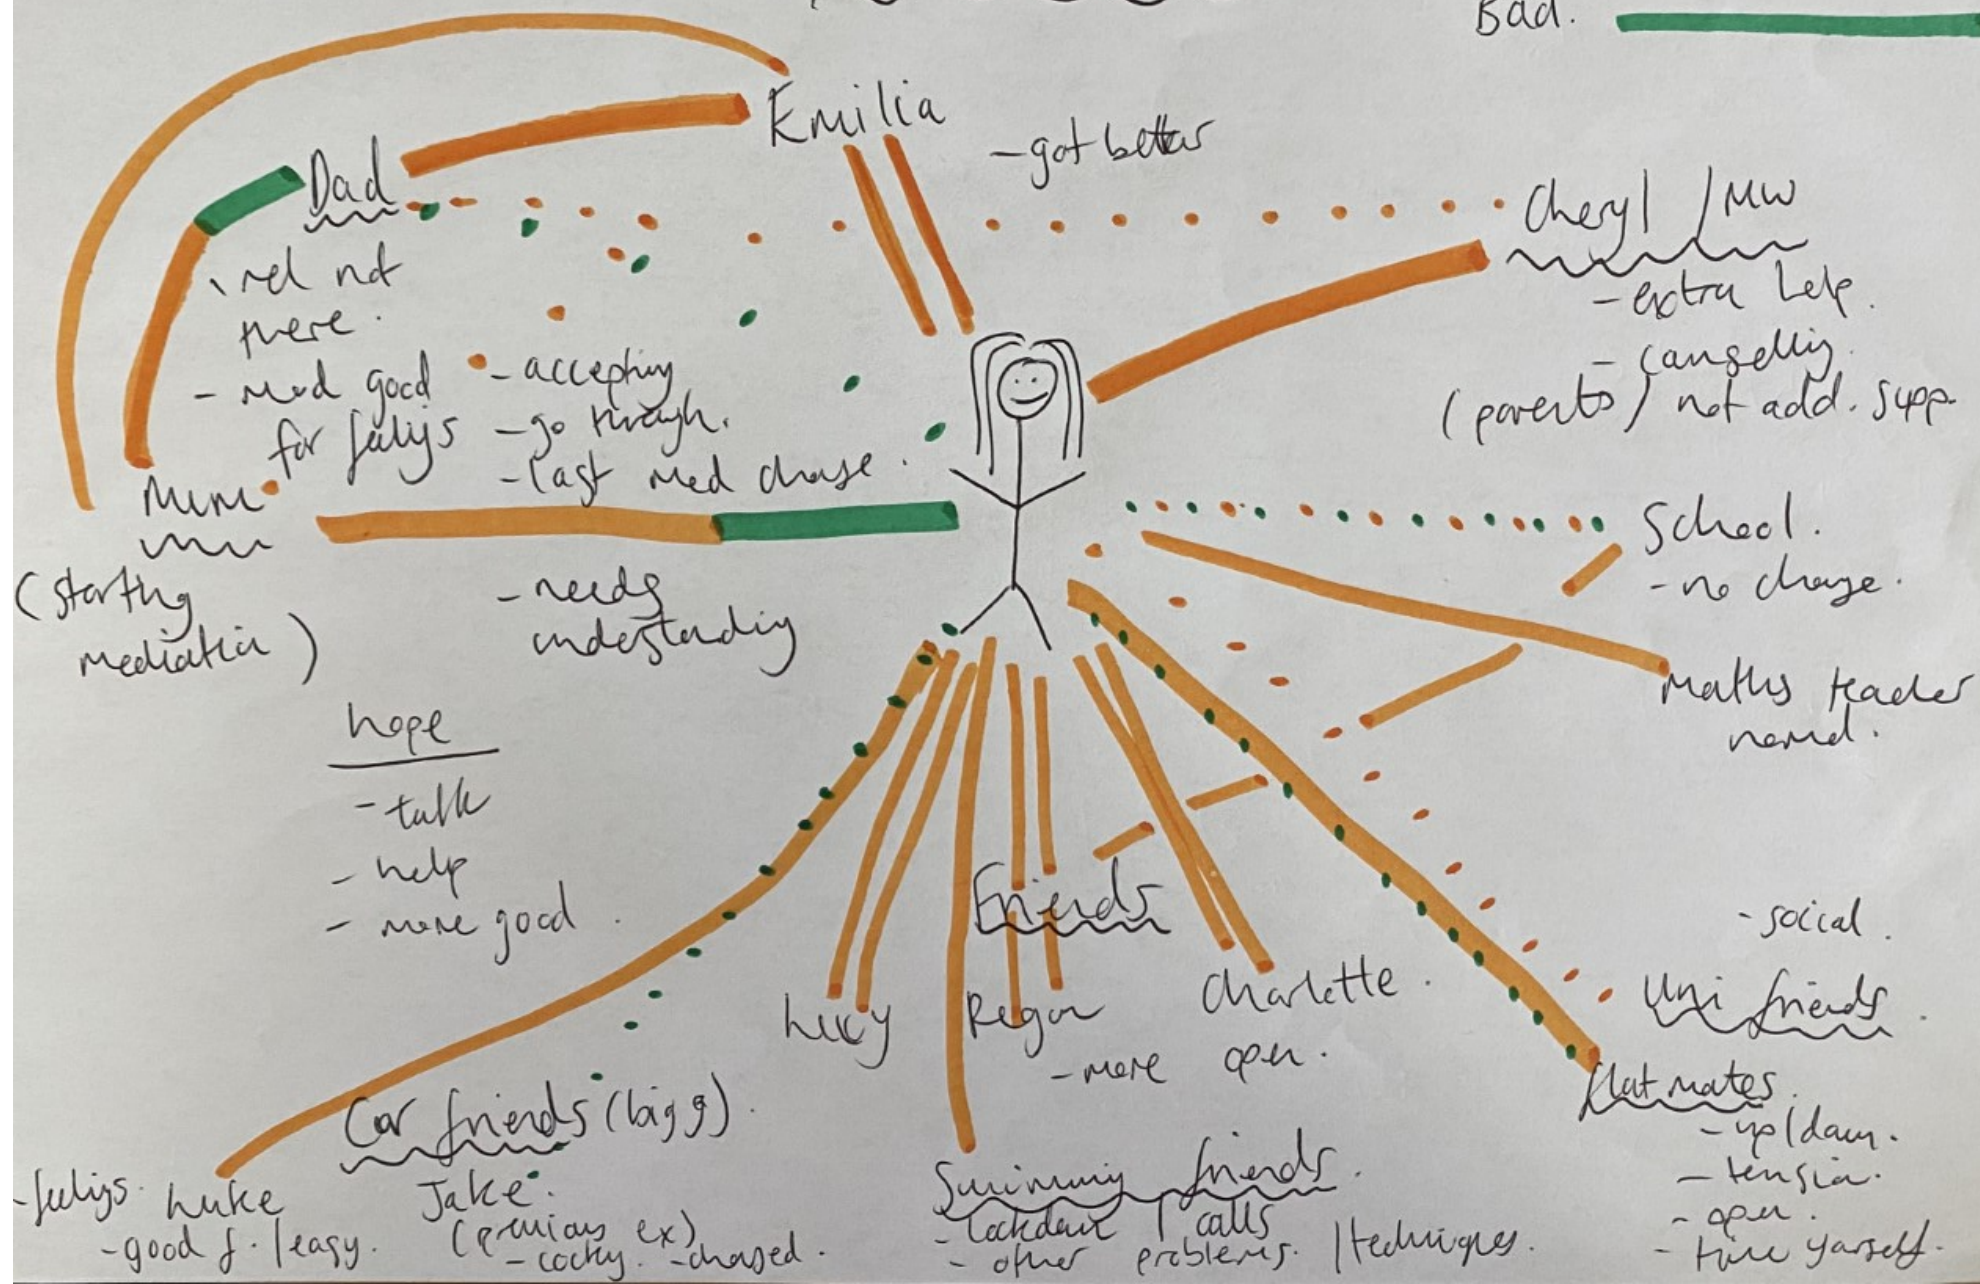 Bad.
Emilia
- got better
Dad
- rel not
there.
- med good
for feelings
- accepting
- go through.
- last med change.
Cheryl / MW
- extra help.
(parents) not add. supp.
Mum
(starting
mediation)
- needs
understanding
School.
- no change.
Maths teacher
hope
- talk
- help
- more good
Friends
Lucy
Regan
- more open.
Charlotte.
- soical.
Uni friends.
flatmates.
- up/down.
- tension.
- open.
- time yourself.
Car friends (bigg).
- feelings.
Luke
- good f. / easy.
Jake.
(previous ex)
- cocky. - changed.
Swimming friends.
- lockdown / calls
- other problems. / techniques.